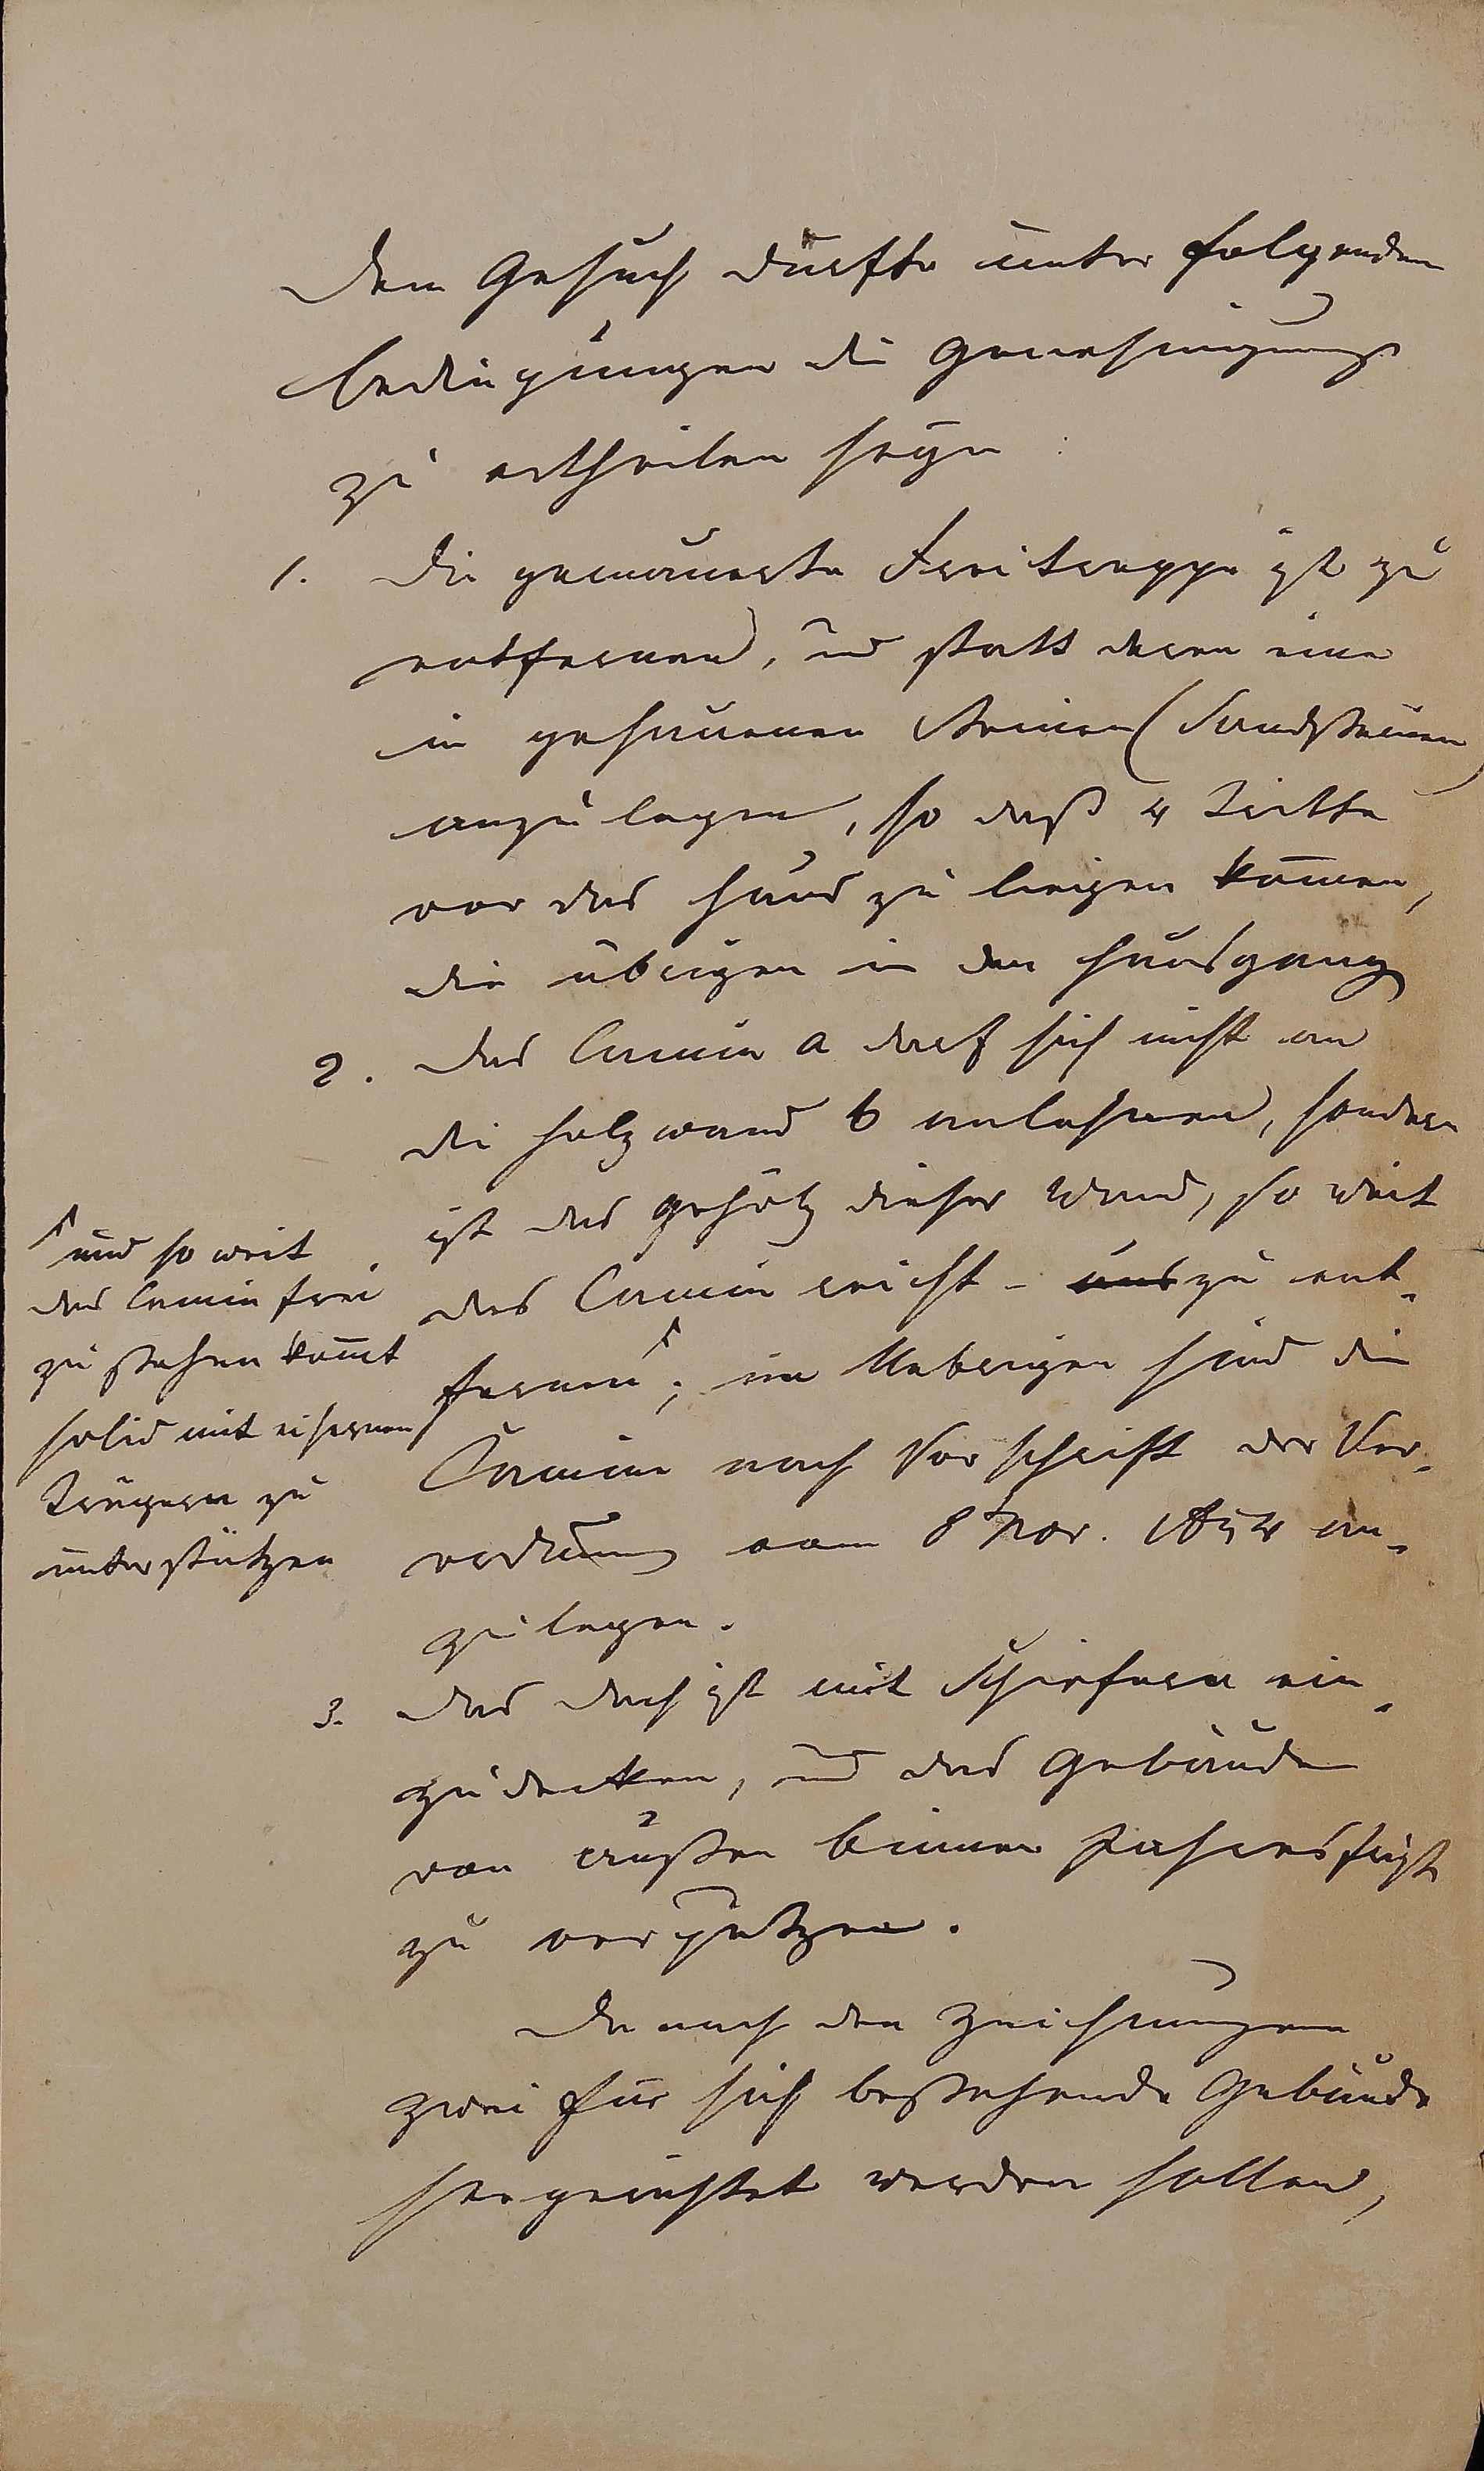 Dem Gesuch dürfte unter folgenden
Bedingungen die Genehmigung
zu ertheilen seyn:
1. Die gemauerte Freitreppe ist zu
entfernen, und statt deren eine
in gehauenen Steinen (Sandsteinen)
anzulegen, so daß 4 Tritte
vor das Haus zu liegen kom̅en,
die übrigen in den Hausgang
2. Das Camin a darf sich nicht an
die Holzwand b anlehnen, sondern
ist das Gehölz dieser Wand, so weit
das Camin reicht - aus zu ent-
fernen ↑; im Uebrigen sind die
Camine nach Vorschrift der Ver-
ordnung vom 8 Nov. 1854 an-
zulegen.
↑ und so weit
das Camin frei
zu stehen kom̅t
solid mit eisernen
Trägern zu
unterstützen
3. Das Dach ist mit Schiefern ein-
zudecken, und das Gebäude
von außen binnen Jahresfrist
zu verputzen.
Da nach den Zeichnungen
zwei für sich bestehende Gebäude
hergerichtet werden sollen,